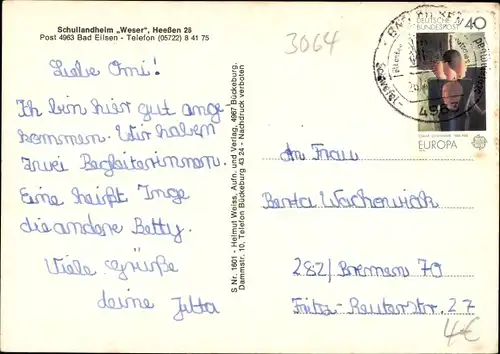 Schullandheim „Weser", Heeßen 28
Post 4963 Bad Eilsen - Telefon (05722) 8 41 75
3064
Liebe Omi!
Ich bin hier gut ange-
kommen. Wir haben
zwei Begleiterinnen.
Eine heißt Inge
die andere Betty.
Viele Grüße
deine Jutta
S Nr. 1601 - Helmut Weiss, Aufn. und Verlag, 4967 Bückeburg,
Dammstr. 10, Telefon Bückeburg 43 24 - Nachdruck verboten
DEUTSCHE
BUNDESPOST
40
4963
EUROPA
An Frau
Berta Wachowiak
282/Bremen 70
Fritz-Reuterstr. 27
4€